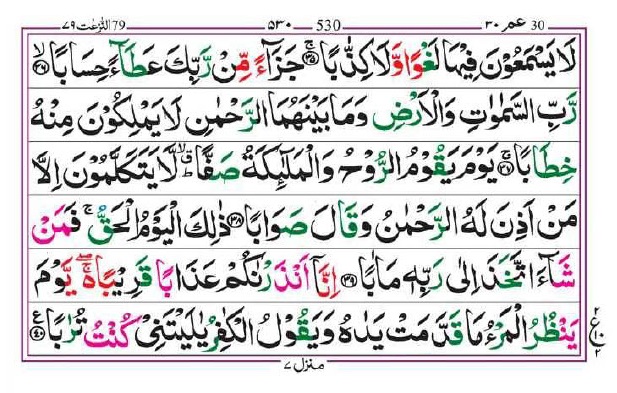 النّٰزعٰت 79 ٧٩ ٥٣٠ 530 عم ٣٠ 30
لَا يَسْمَعُوْنَ فِيْهَا لَغْوًا وَّلَا كِذّٰبًا ۚ﴿٣٥﴾ جَزَآءً مِّنْ رَّبِّكَ عَطَآءً حِسَابًا ۙ﴿٣٦﴾
رَّبِّ السَّمٰوٰتِ وَالْاَرْضِ وَمَا بَيْنَهُمَا الرَّحْمٰنِ لَا يَمْلِكُوْنَ مِنْهُ
خِطَابًا ۚ﴿٣٧﴾ يَوْمَ يَقُوْمُ الرُّوْحُ وَالْمَلٰٓئِكَةُ صَفًّا ؕۙ لَّا يَتَكَلَّمُوْنَ اِلَّا
مَنْ اَذِنَ لَهُ الرَّحْمٰنُ وَقَالَ صَوَابًا ﴿٣٨﴾ ذٰلِكَ الْيَوْمُ الْحَقُّ ۚ فَمَنْ
شَآءَ اتَّخَذَ اِلٰى رَبِّهٖ مَاٰبًا ﴿٣٩﴾ اِنَّاۤ اَنْذَرْنٰكُمْ عَذَابًا قَرِيْبًا ۚۖ يَّوْمَ
يَنْظُرُ الْمَرْءُ مَا قَدَّمَتْ يَدٰهُ وَيَقُوْلُ الْكٰفِرُ يٰلَيْتَنِيْ كُنْتُ تُرٰبًا ﴿٤٠﴾
٢ ع ١٠ ٢
منزل ٧